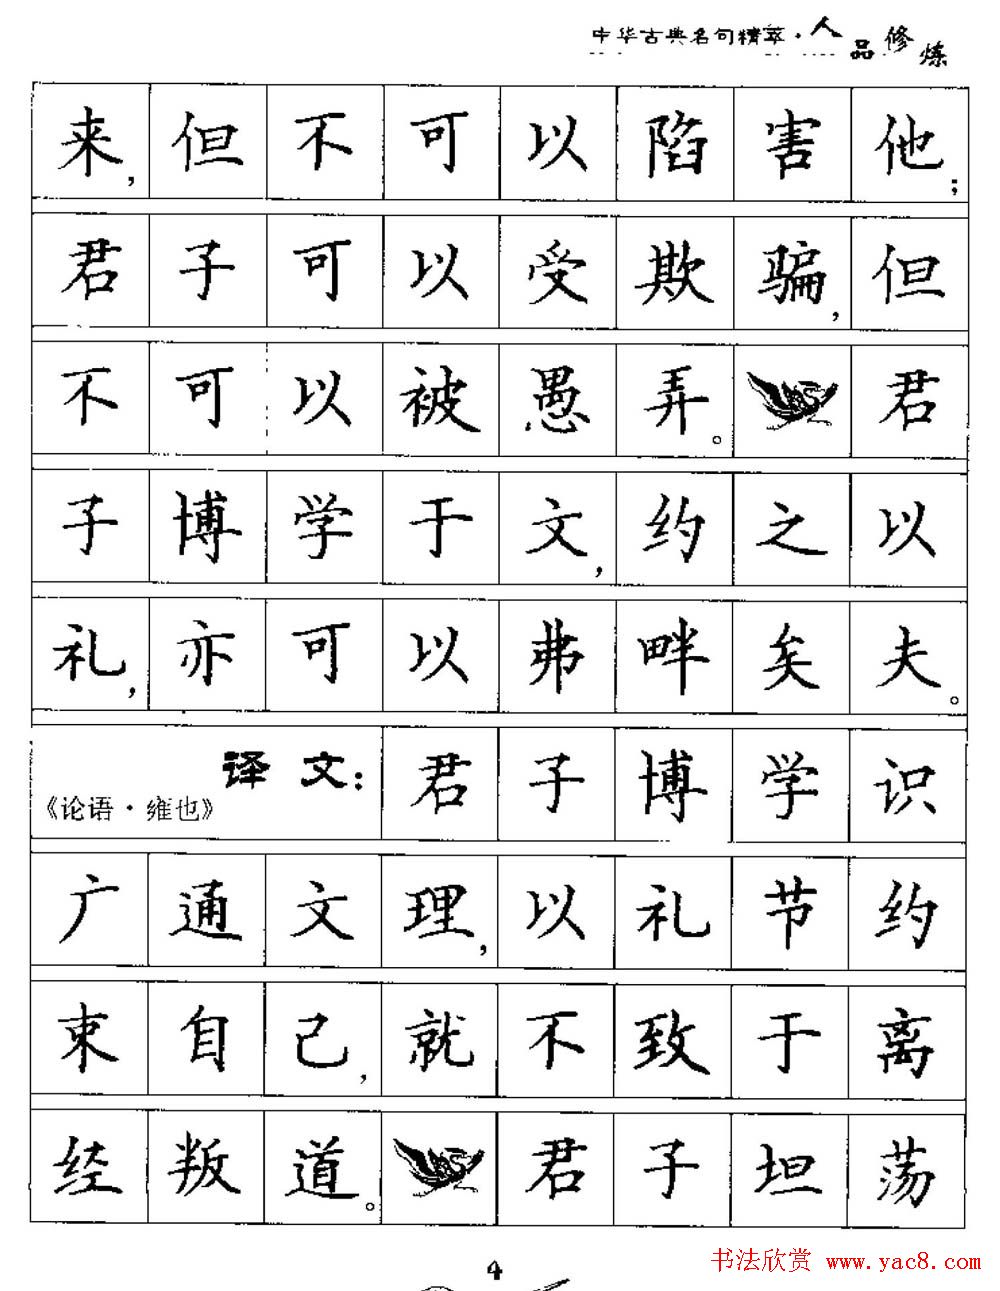 中华古典名句精萃·人品修炼
来，但不可以陷害他；
君子可以受欺骗，但
不可以被愚弄。君
子博学于文，约之以
礼，亦可以弗畔矣夫。
《论语·雍也》译文：君子博学识
广通文理，以礼节约
束自己，就不致于离
经叛道。君子坦荡
4
书法欣赏 www.yac8.com